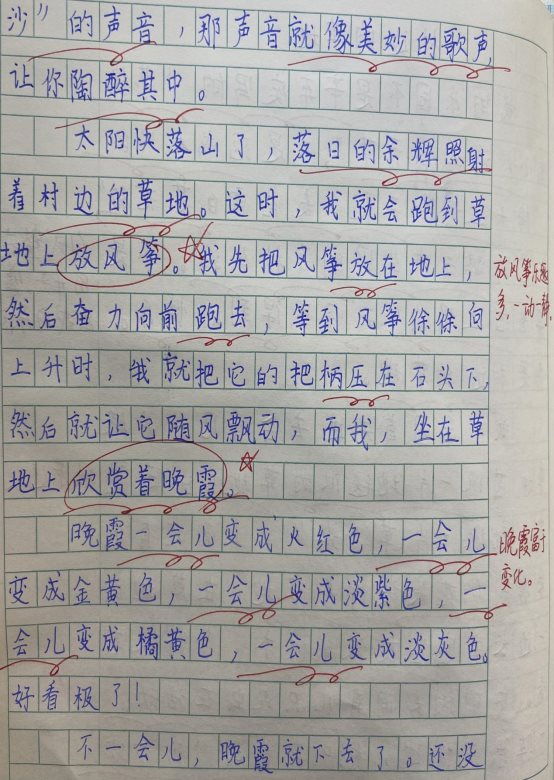 沙”的声音，那声音就像美妙的歌声，
让你陶醉其中。
太阳快落山了，落日的余辉照射
着村边的草地。这时，我就会跑到草
地上放风筝。我先把风筝放在地上，
放风筝乐趣
然后奋力向前跑去，等到风筝徐徐向
多，一动一静。
上升时，我就把它的把柄压在石头下，
然后就让它随风飘动，而我，坐在草
地上欣赏着晚霞。
晚霞一会儿变成火红色，一会儿
晚霞富于
变成金黄色，一会儿变成淡紫色，一
变化。
会儿变成橘黄色，一会儿变成淡灰色。
好看极了！
不一会儿，晚霞就下去了。还没